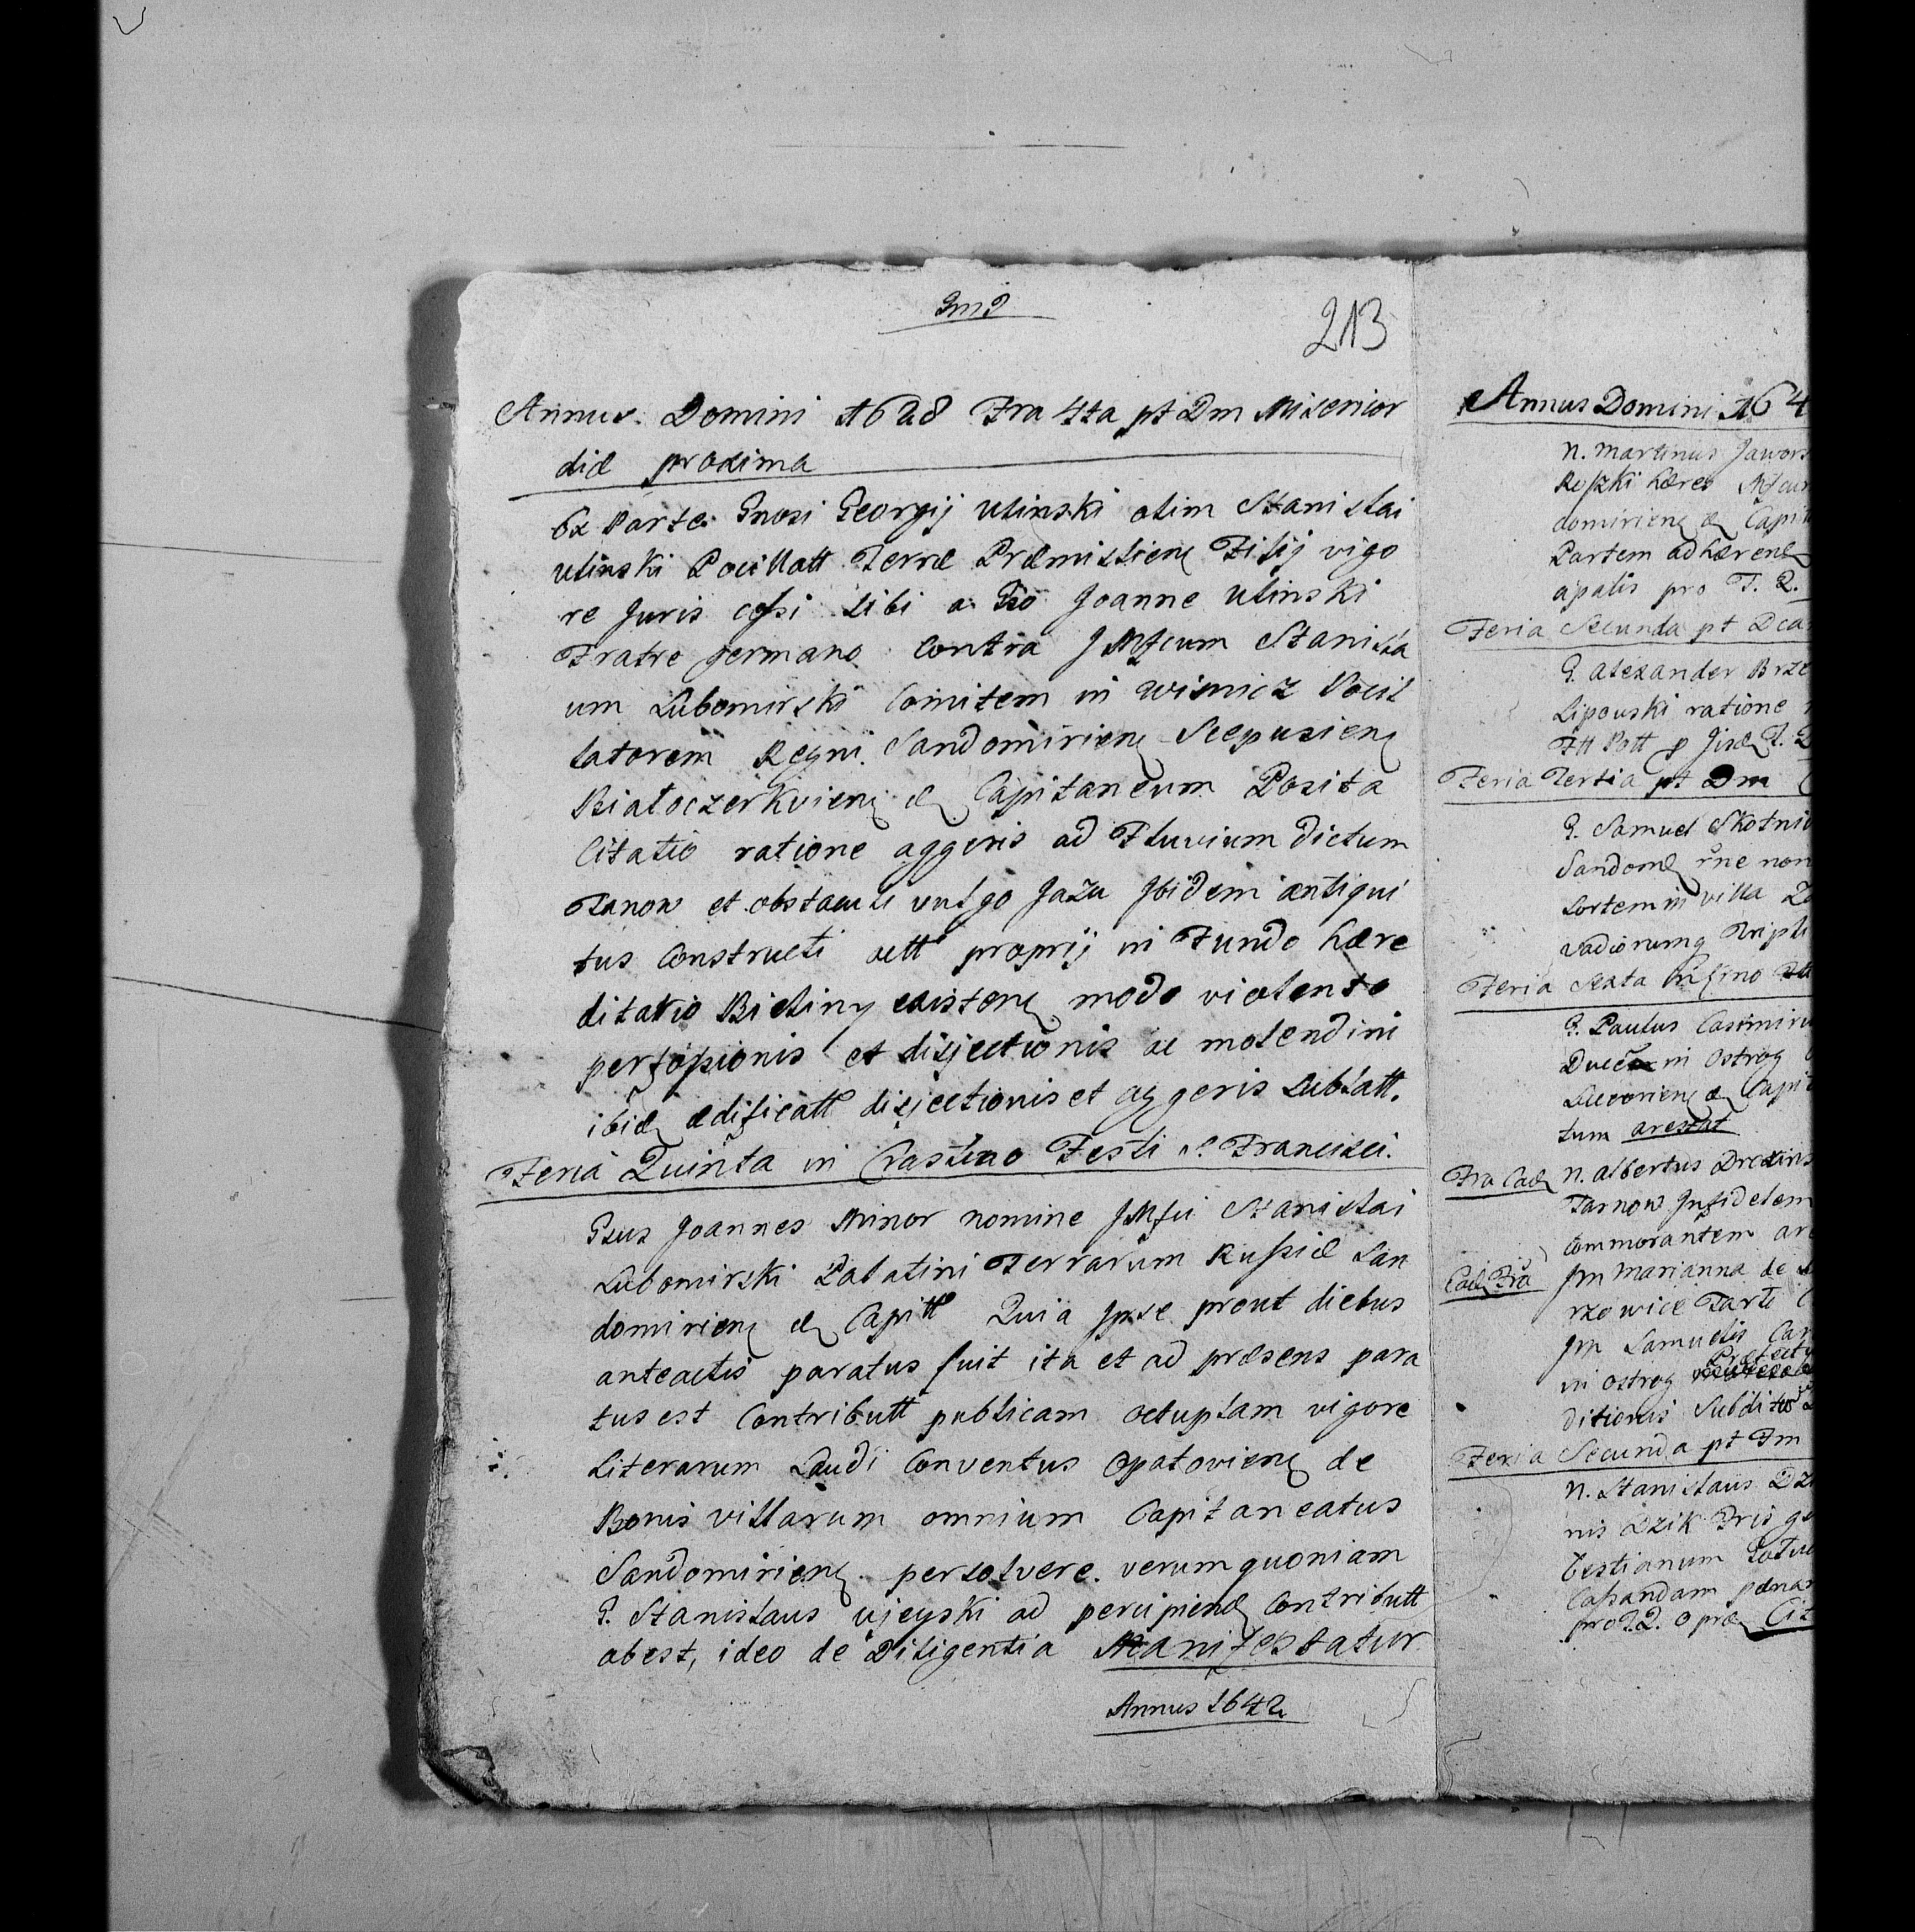 213
Annus Domini 1628 Fra 4ta pt Dm Misericor
diæ proxima
Ex Parte Gnosi Georgij Ulinski olim Stanislai
Ulinski Pocillatt Terræ Præmisliens Filij vigo
re Juris cessi sibi a Gso Joanne Ulinski
Fratre germano contra JMfcum Stanisla
um Lubomirski Comitem in Wisnicz Pocil
latorem Regni Sandomiriens Scepusiens
Białoczerkviens & Capitaneum Posita
Citatio ratione aggeris ad Fluvium dictum
Tanow et obstaculi vulgo Jazu Ibidem antiqui
tus Constructi utt proprij in Fundo hære
ditario Bieliny existens modo violento
perfossionis et disjectionis ac molendini
ibid ædificatt disjectionis et aggeris sublatt.
Feria Quinta in Crastino Festi S. Francisci.
Gsus Joannes Minor nomine JMfci Stanislai
Lubomirski Palatini Terrarum Russiæ San
domiriens & Capitt Quia Ipse prout diebus
anteactis paratus fuit ita et ad præsens para
tus est Contributt publicam octuplam vigore
Literarum Laudi Conventus Opatoviens de
Bonis villarum omnium Capitaneatus
Sandomiriens persolvere. verum quoniam
G. Stanislaus ujeyski ad percipiend Contributt
abest, ideo de Diligentia Manifestatur
Annus 1642
Annus Domini 164
N. Martinus Jawors
Ruszki hæres
domiriens & Capit
Partem adhærend
apalis pro T. Q.
Feria Secunda pt Dca
G. Alexander Brze
Lipouski ratione
Feria Tertia pt Dm
G. Samuel Skotni
Sandom rne non
sortem in villa
vadiorumq Tripli
Feria Sexta
G. Paulus Casimiru
in Ostrog
& Capit
tum arestat
Fra Ead N. Albertus
Tarnow Infidelem
Commorantem are
Ead Fra Jm Marianna de
rzowice Tarli
Jm Samuelis Car
in Ostrog
ditionis Subditus
Feria Secunda pt Fm
N. Stanislaus Dzi
nis Dzik Fris ge
Cassandam pænar
pro T. Q. Cit